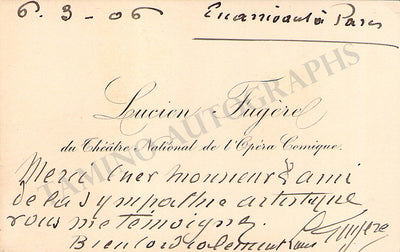 6. 3 - 06
En arrivant à Paris
Lucien Fugère
du Théâtre National de l'Opéra Comique.
TAMINO AUTOGRAPHS
Merci cher monsieur & ami
de la sympathie artistique
vous me témoignez.
Bien cordialement
L Fugère